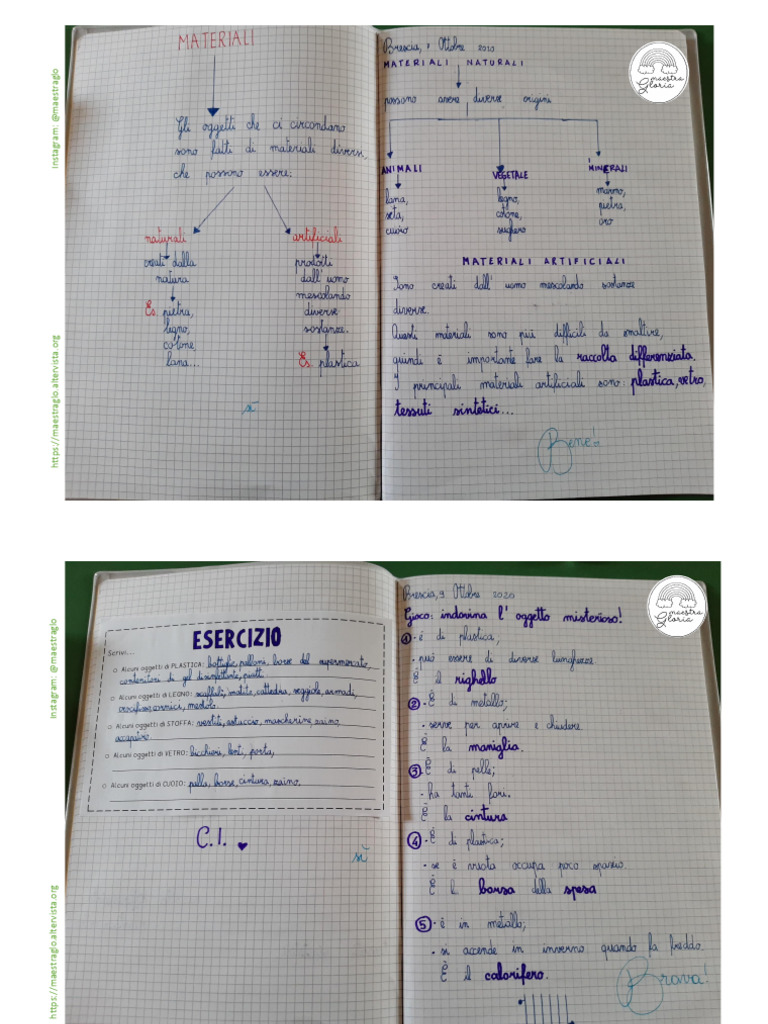 MATERIALI
Gli oggetti che ci circondano
sono fatti di materiali diversi,
che possono essere:
naturali
creati dalla
natura
Es. pietra,
legno,
cotone,
lana...
artificiali
prodotti
dall' uomo
mescolando
diverse
sostanze.
Es. plastica
Brescia, Ottobre 2020
MATERIALI NATURALI
possono avere diverse origini
ANIMALI
lana,
seta,
cuoio
VEGETALE
legno,
cotone,
sughero
MINERALI
marmo,
pietra,
oro
MATERIALI ARTIFICIALI
Sono creati dall' uomo mescolando sostanze
diverse.
Questi materiali sono più difficili da smaltire,
quindi è importante fare la raccolta differenziata.
I principali materiali artificiali sono: plastica, vetro,
tessuti sintetici...
Bene!
maestra
Gloria
Instagram: @maestraglo
https://maestraglo.altervista.org
ESERCIZIO
Scrivi...
Alcuni oggetti di PLASTICA: bottiglie, palloni, borse del supermercato,
contenitori di gel disinfettante, piatti
Alcuni oggetti di LEGNO: scaffali, matite, cattedra, seggiole, armadi,
crocifisso, cornici, mestolo.
Alcuni oggetti di STOFFA: vestiti, astuccio, mascherine, zaino,
Alcuni oggetti di VETRO: bicchieri, lenti, porta,
Alcuni oggetti di CUOIO: palla, borse, cintura, zaino.
C.I.
Brescia, 9 Ottobre 2020
Gioco: indovina l' oggetto misterioso!
1 - è di plastica,
- può essere di diverse lunghezze
È il righello
2 - È di metallo;
- serve per aprire e chiudere.
È la maniglia.
3 - È di pelle;
- ha tanti fori.
È la cintura
4 - È di plastica;
- se è vuota occupa poco spazio.
È la borsa della spesa
5 - è in metallo;
- si accende in inverno quando fa freddo.
È il calorifero.
Brava!
maestra
Gloria
Instagram: @maestraglo
https://maestraglo.altervista.org